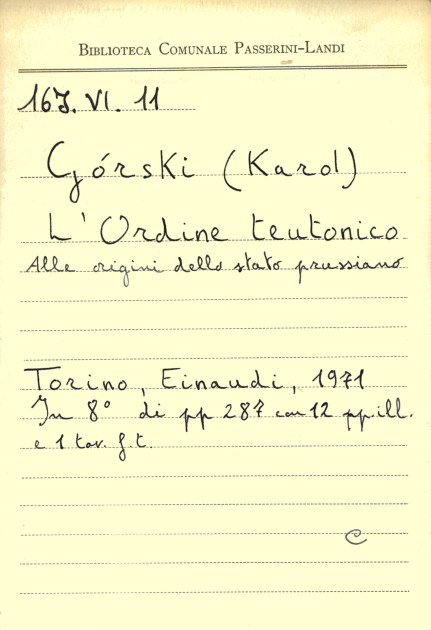 BIBLIOTECA COMUNALE PASSERINI-LANDI
167. VI. 11
Górski (Karol)
L'Ordine teutonico
Alle origini dello stato prussiano
Torino, Einaudi, 1971
In 8° di pp 287 con 12 pp.ill.
e 1 tav. f.t.
C